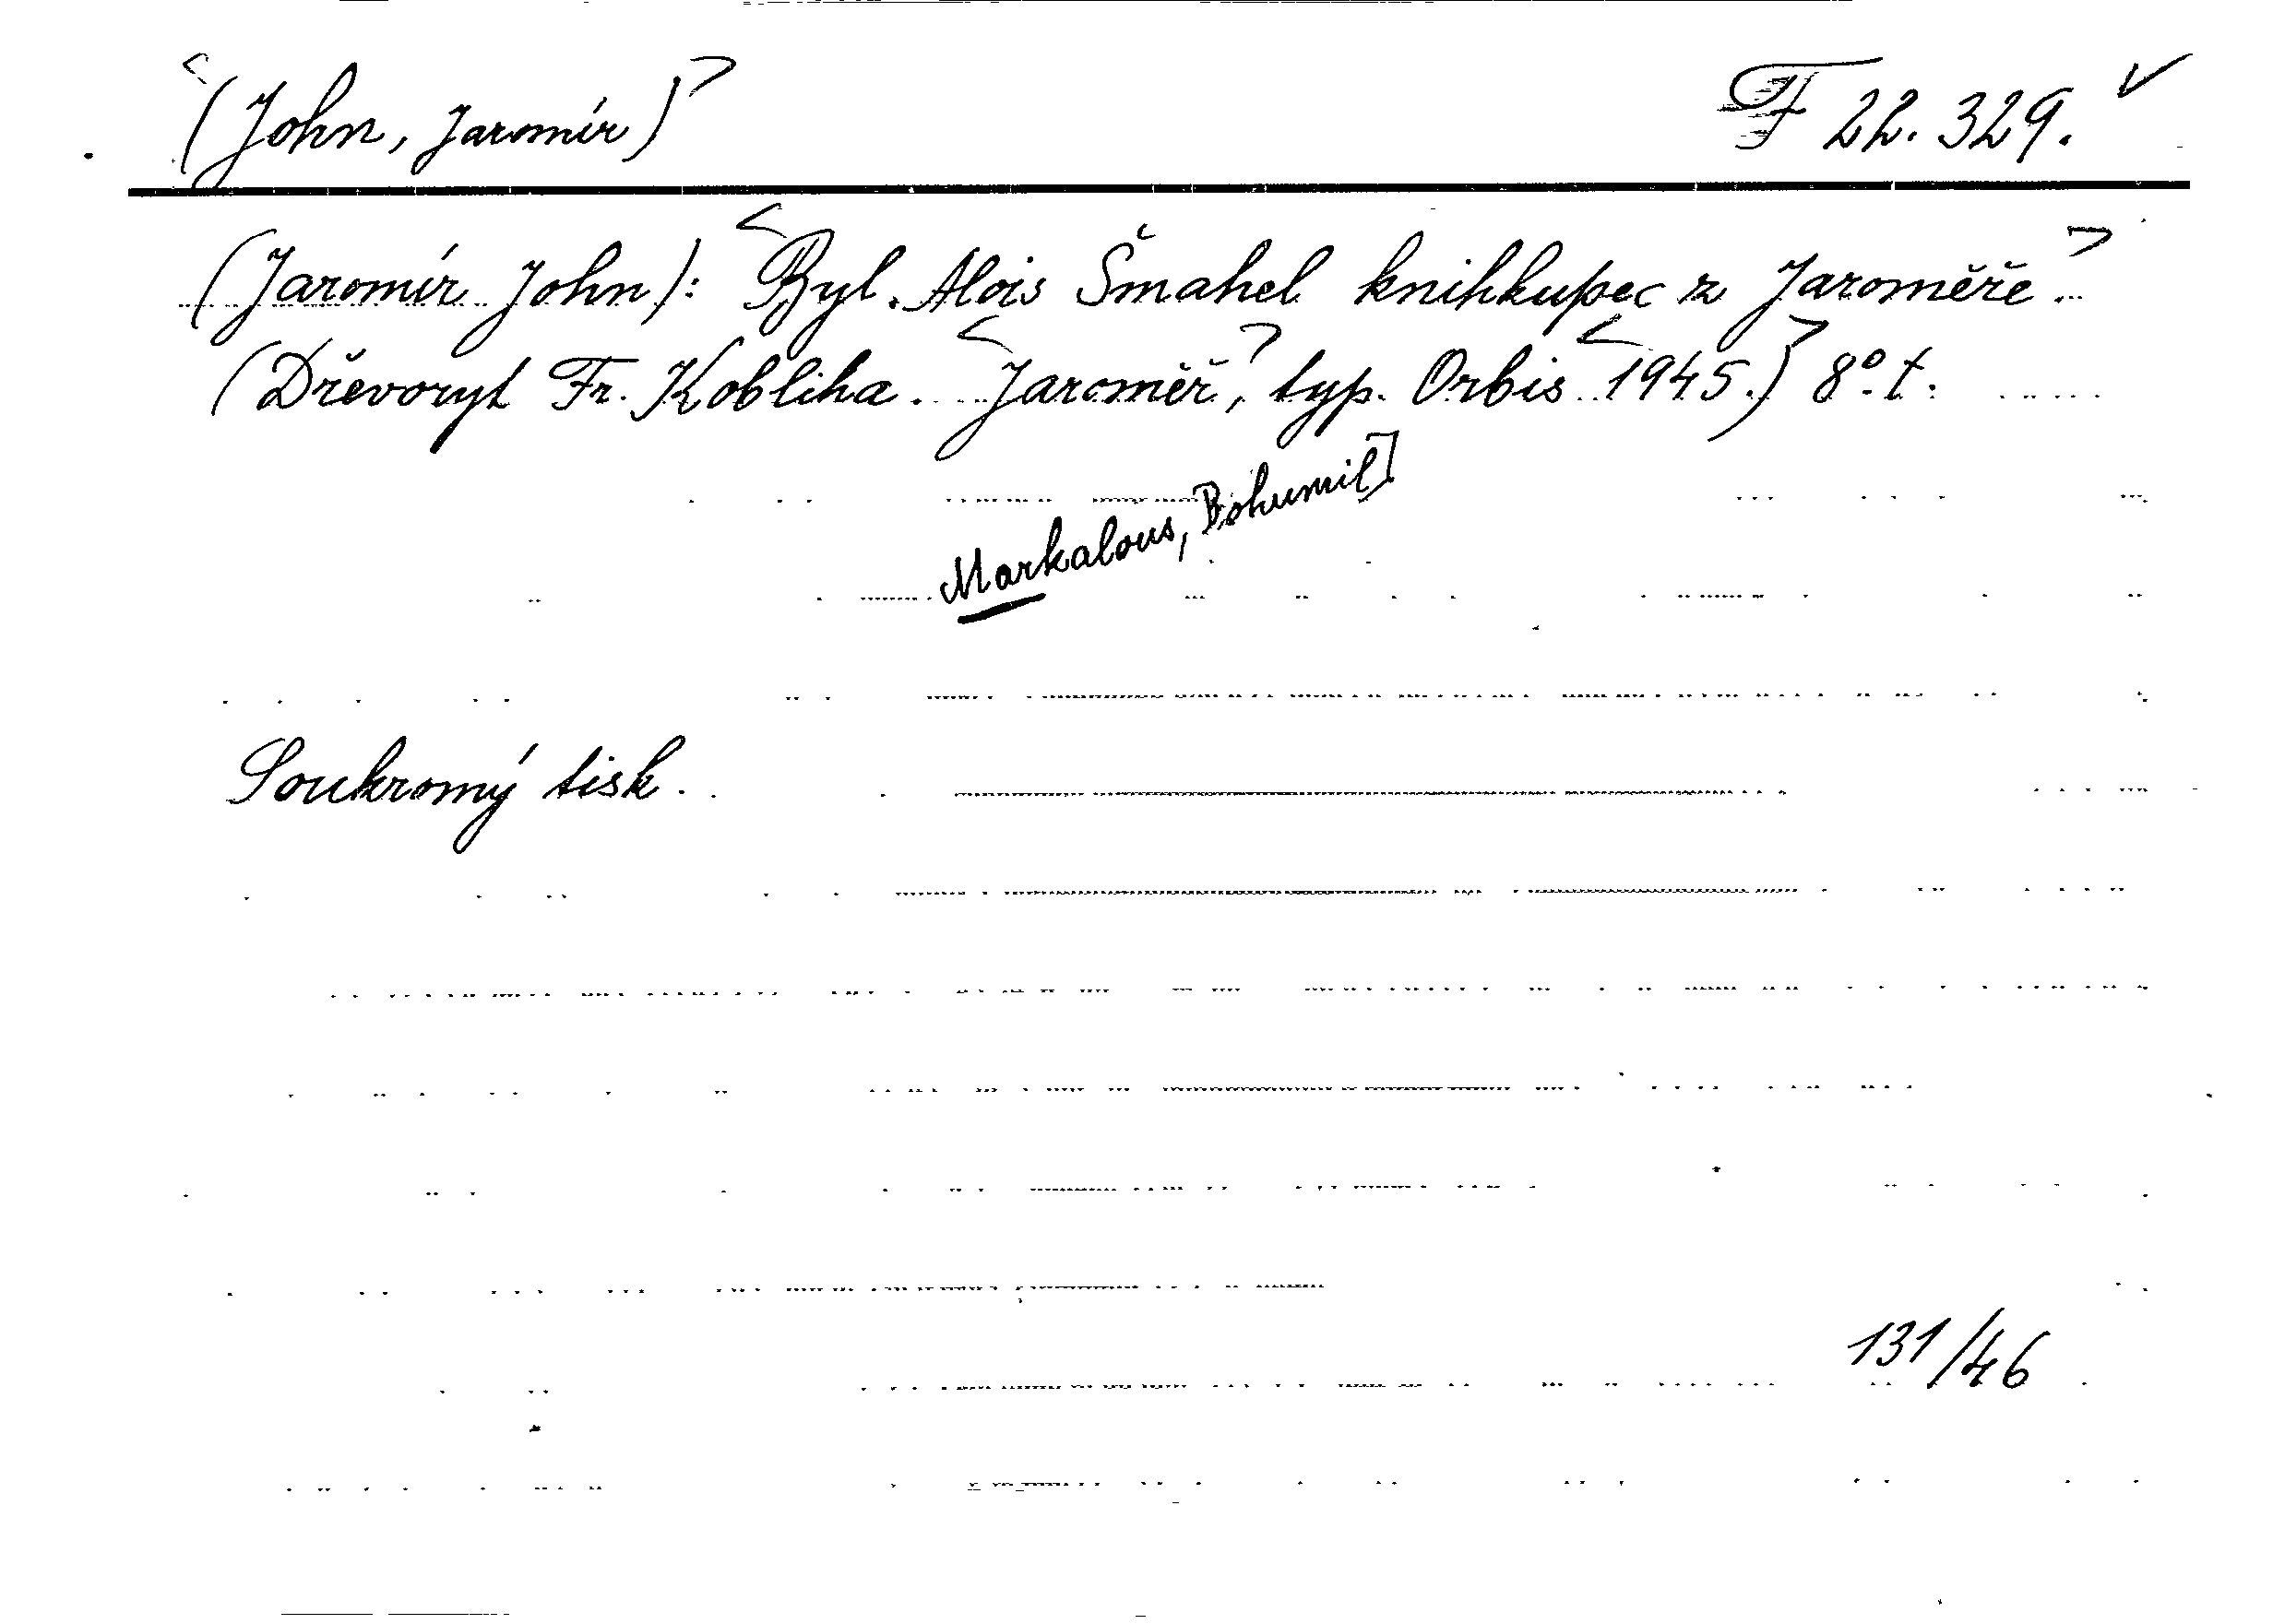 <(John, Jaromír)> F 22.329. ✓
(Jaromír John): <Byl. Alois Šmahel knihkupec z Jaroměře.>
(Dřevoryt Fr. Kobliha. <Jaroměř,> typ. Orbis <1945.)> 8°. t.
Markalous, Bohumil]
Soukromý tisk.
131/46